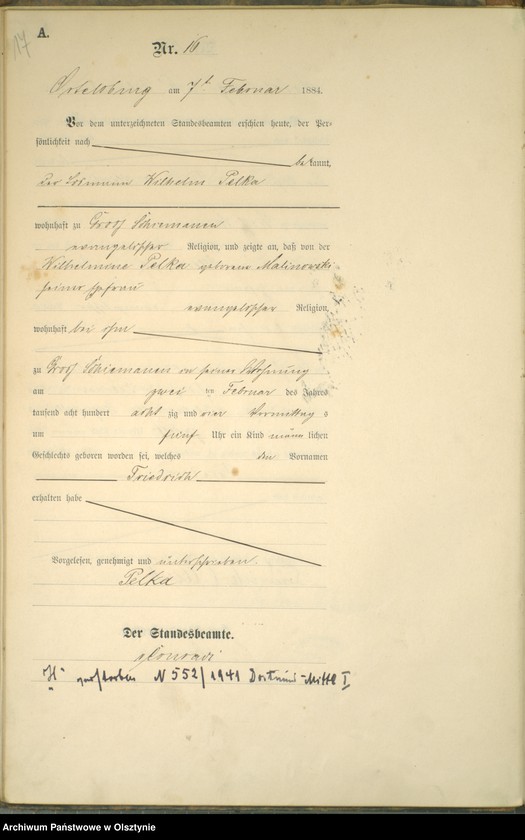 17
A.
Nr. 16
Ortelsburg am 7t Februar 1884.
Vor dem unterzeichneten Standesbeamten erschien heute, der Per-
sönlichkeit nach
be kannt,
der Losmann Wilhelm Pelka
wohnhaft zu Groß Schiemanen
evangelischer Religion, und zeigte an, daß von der
Wilhelmine Pelka geborene Malinowski
seiner Ehefrau
evangelischer Religion,
wohnhaft bei ihm
zu Groß Schiemanen in seiner Wohnung
am zwei ten Februar des Jahres
tausend acht hundert acht zig und vier Vormittag s
um fünf Uhr ein Kind männ lichen
Geschlechts geboren worden sei, welches den Vornamen
Friedrich
erhalten habe
Vorgelesen, genehmigt und unterschrieben.
Pelka
Der Standesbeamte.
"H" gestorben N 552/1941 Dortmund-Mitte I
Archiwum Państwowe w Olsztynie